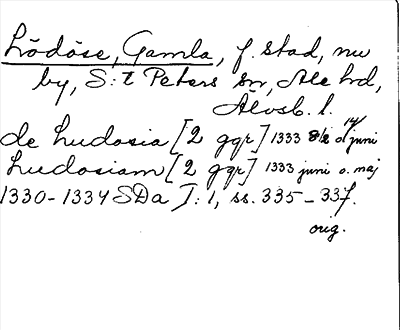 Lödöse, Gamla, f. stad, nu
by, S:t Peters sn, Ale hd,
Älvsb. l.
de Ludosia [2 ggr] 1333 14/ juni
Ludosiam [2 ggr] 1333 juni o. maj
1330-1334 SDa I:1, ss. 335-337.
orig.